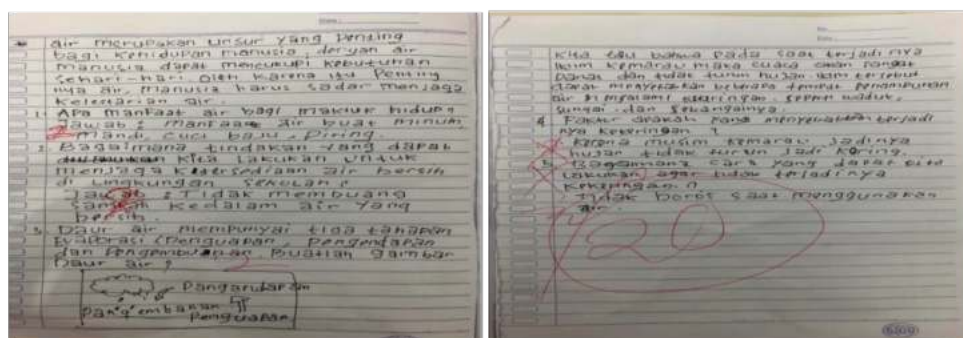 air merupakan unsur yang penting
bagi kehidupan manusia, dengan air
manusia dapat mencukupi kebutuhan
sehari-hari oleh karena itu penting
nya air, manusia harus sadar menjaga
kelestarian air.
1. Apa manfaat air bagi makluk hidup?
Jawab: manfaat air buat minum,
mandi, cuci baju, piring.
2. Bagaimana tindakan yang dapat
kita lakukan untuk
menjaga ketersediaan air bersih
di lingkungan sekolah?
Jawab: Tidak membuang
sampah kedalam air yang
bersih.
3. Daur air mempunyai tiga tahapan
Evaporasi (Penguapan, pengendapan
dan pengembunan. Buatlah gambar
Daur air?
Pengembanan
Penguapan
Kita tau bahwa pada saat terjadi nya
musim kemarau maka cuaca akan sangat
panas dan tidak turun hujan. tersebut
dapat menyebabkan beberapa tempat penampungan
air mengalami kekeringan. seperti waduk,
sungai dan sebagainya.
4 Faktor apakah yang menyebabkan terjadi
nya kekeringan ?
Karena musim kemarau jadinya
hujan tidak turun jadi kering.
5. Bagaimana cara yang dapat kita
lakukan agar tidak terjadinya
kekeringan ?
Tidak boros saat menggunakan
air.
20